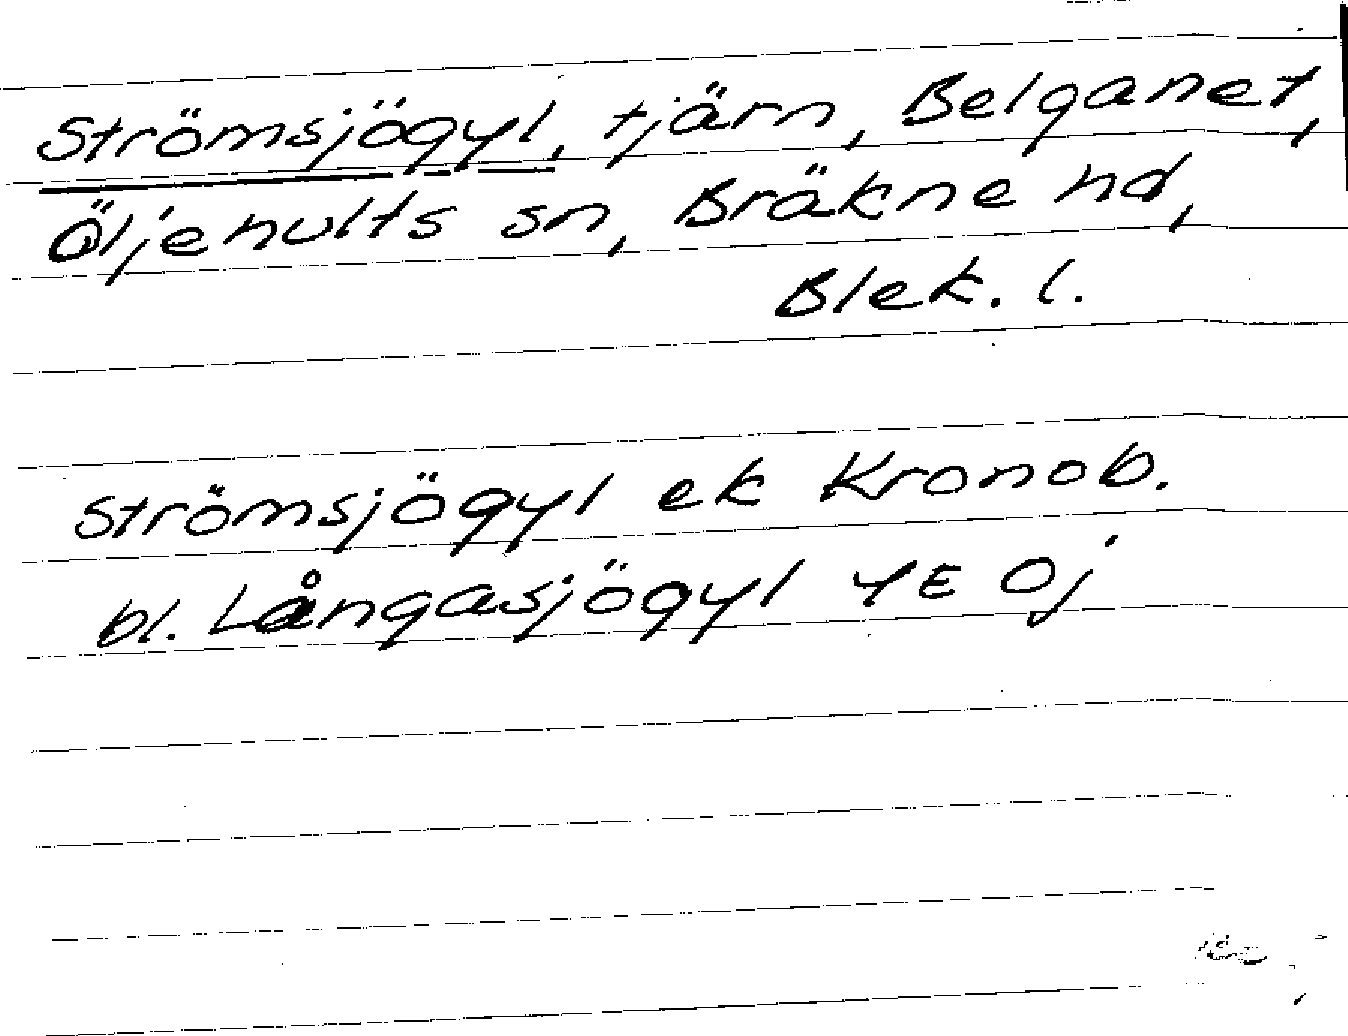 Strömsjögyl, tjärn, Belganet,
Öljehults sn, Bräkne hd,
Blek. l.
Strömsjögyl ek Kronob.
bl. Långasjögyl 4E Oj